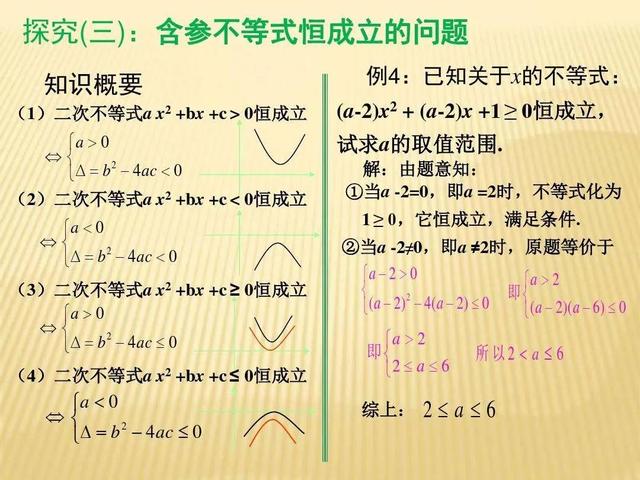 探究(三)：含参不等式恒成立的问题
知识概要
（1）二次不等式a x² +bx +c > 0恒成立
⇔ {a > 0
Δ = b² − 4ac < 0
（2）二次不等式a x² +bx +c < 0恒成立
⇔ {a < 0
Δ = b² − 4ac < 0
（3）二次不等式a x² +bx +c ≥ 0恒成立
⇔ {a > 0
Δ = b² − 4ac ≤ 0
（4）二次不等式a x² +bx +c ≤ 0恒成立
⇔ {a < 0
Δ = b² − 4ac ≤ 0
例4：已知关于x的不等式：
(a-2)x² + (a-2)x +1 ≥ 0恒成立，
试求a的取值范围.
解：由题意知：
①当a -2=0，即a =2时，不等式化为
1 ≥ 0，它恒成立，满足条件.
②当a -2≠0，即a ≠2时，原题等价于
{a − 2 > 0
(a − 2)² − 4(a − 2) ≤ 0
即 {a > 2
(a − 2)(a − 6) ≤ 0
即 {a > 2
2 ≤ a ≤ 6
所以 2 < a ≤ 6
综上： 2 ≤ a ≤ 6